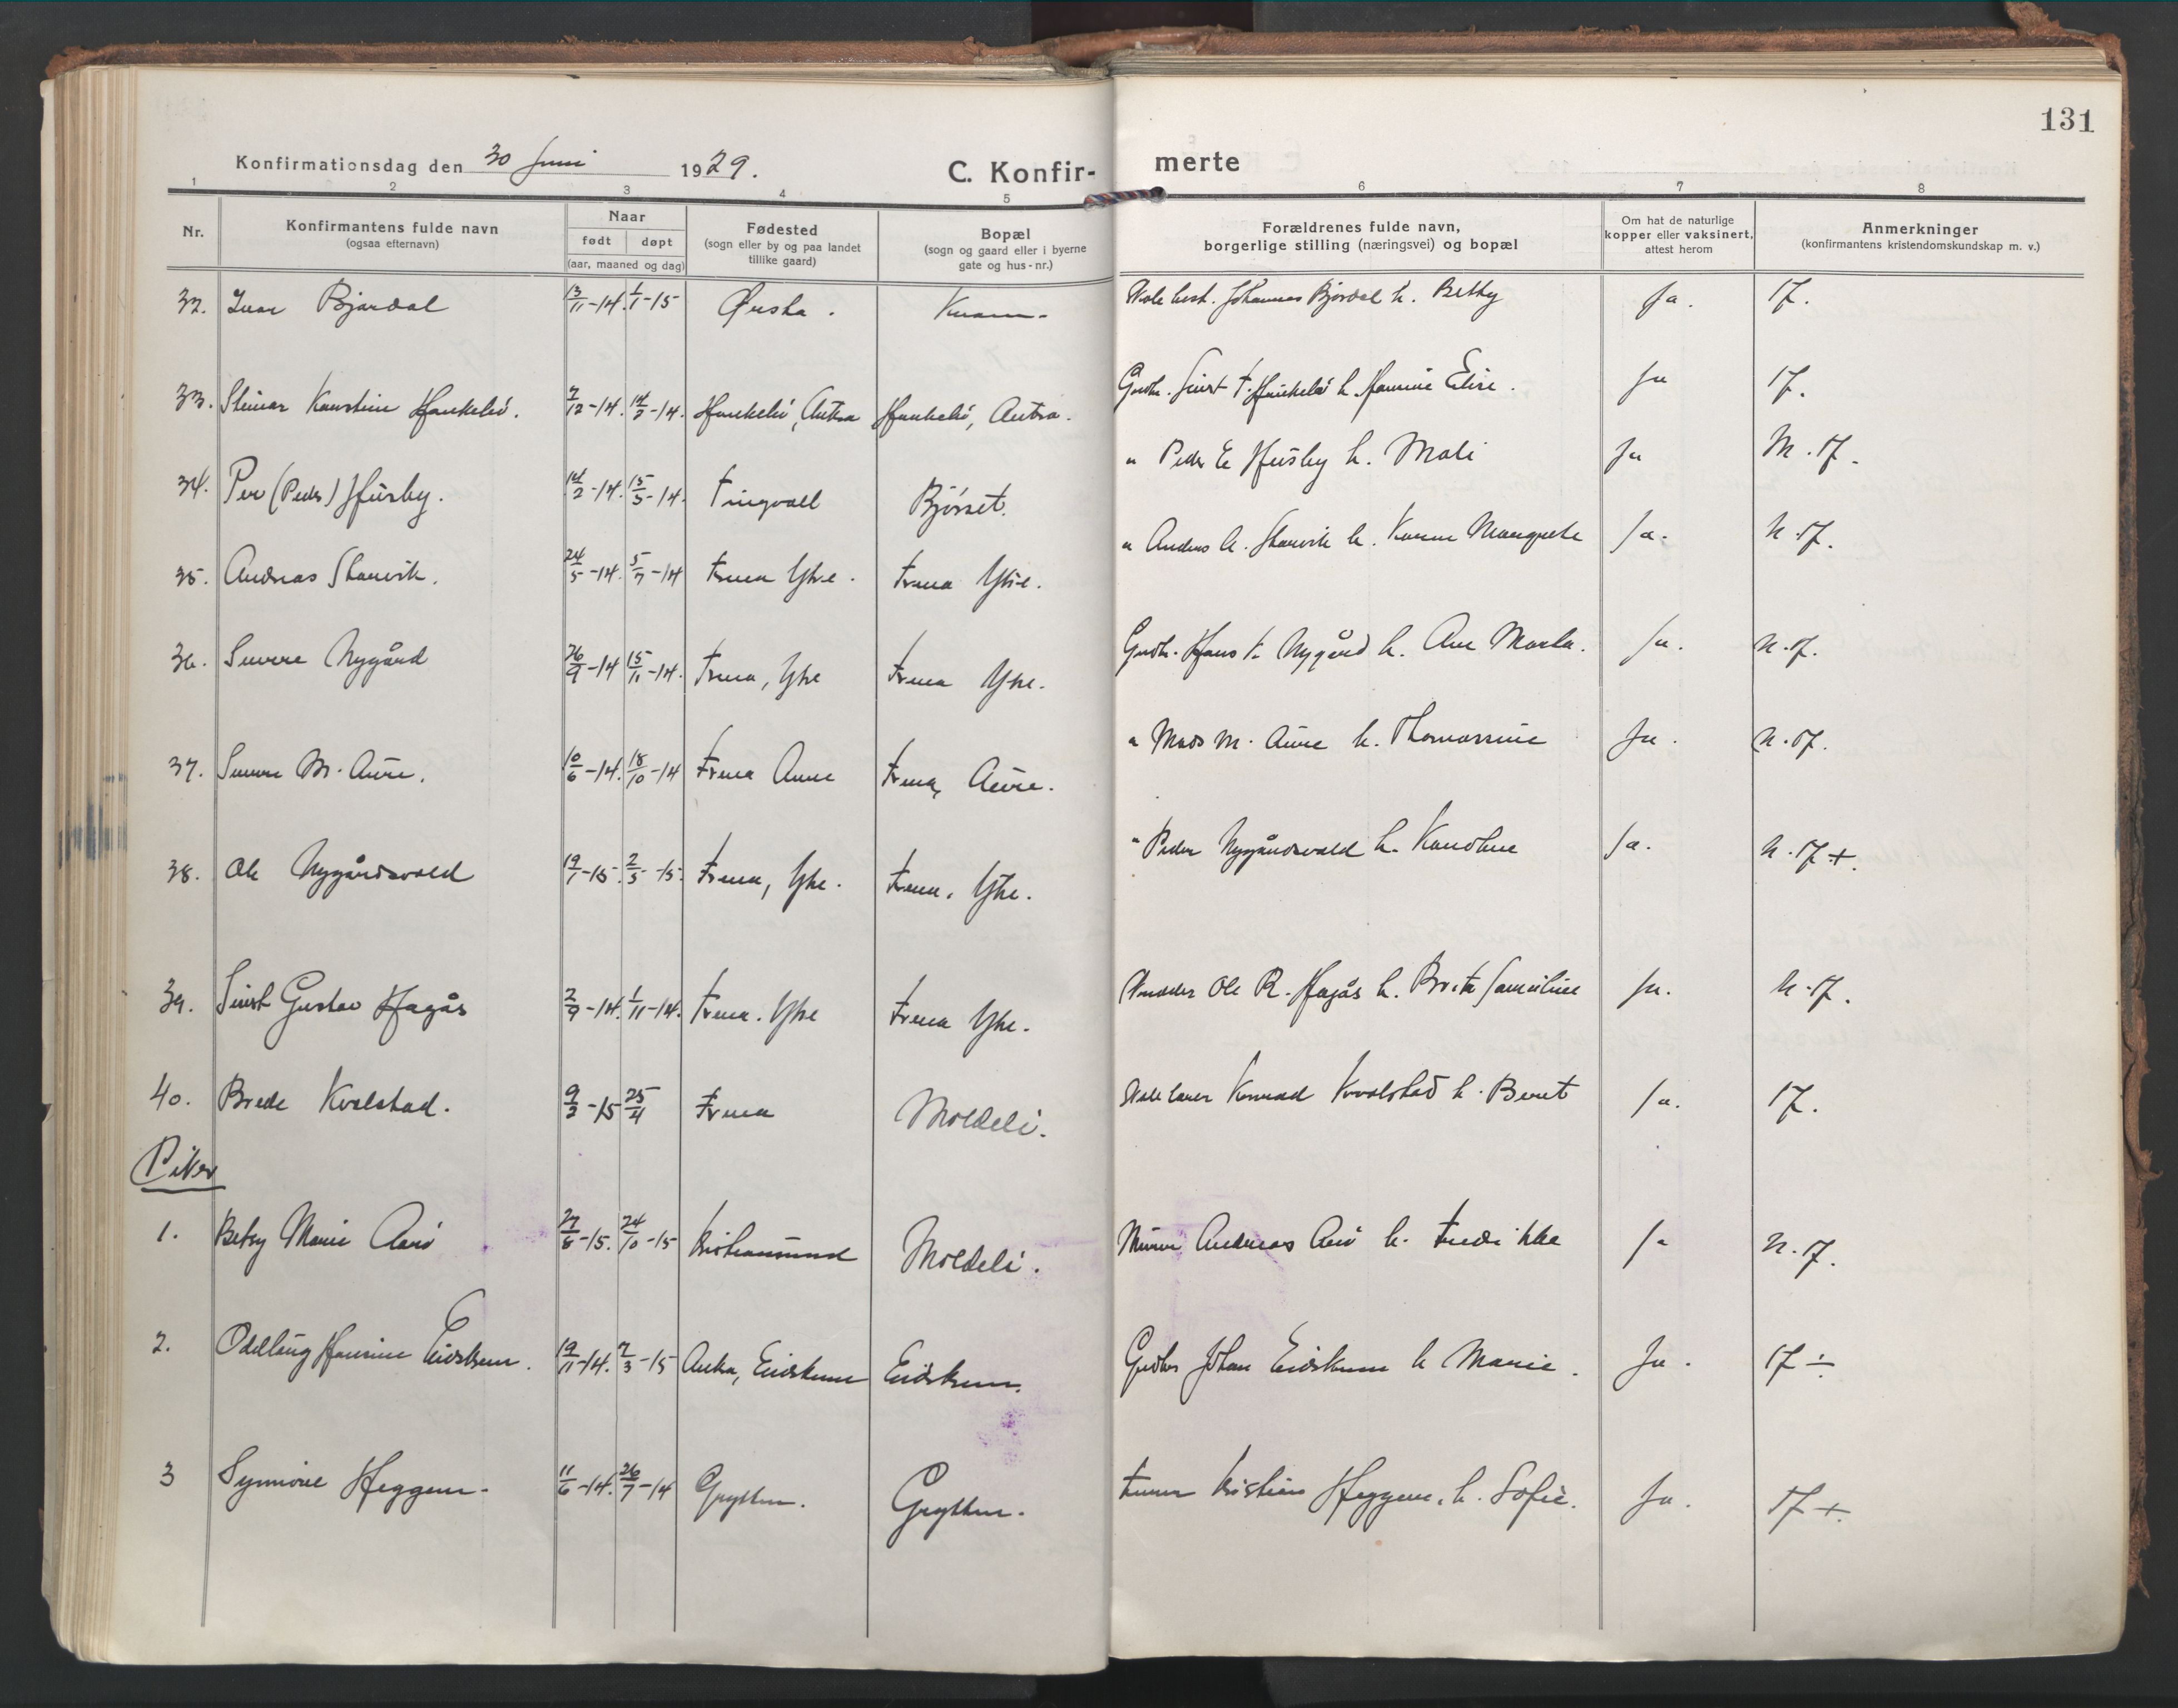 131
Konfirmationsdag den 30 Juni 1929.
C. Konfir- merte
1 2 3 4 5 6 7 8
Nr.
Konfirmantens fulde navn
(ogsaa efternavn)
Naar
født døpt
(aar, maaned og dag)
Fødested
(sogn eller by og paa landet
tillike gaard)
Bopæl
(sogn og gaard eller i byerne
gate og hus-nr.)
Forældrenes fulde navn,
borgerlige stilling (næringsvei) og bopæl
Om hat de naturlige
kopper eller vaksinert,
attest herom
Anmerkninger
(konfirmantens kristendomskundskap m. v.)
32. Ivar Bjørdal 13/11-14. 1/1-15 Ørsta. Kvam. Johannes Bjørdal h. Betty Ja. 17.
33. Steinar Kaurstein Haukebø. 7/12-14. 14/2-14. Haukebø, Autra Haukebø, Autra. Grdbr. Sivert T. Haukebø h. Hannine Elise. Ja 17.
34. Per (Peder) Husby. 14/2-14. 15/3-14. Tingvoll Bjørset. " Peder E Husby h. Mali Ja M. 17.
35. Andreas Skarvik. 24/5-14. 5/7-14 Fræna Ytre. Fræna Ytre. " Anders A. Skarvik h. Karen Margrete Ja. N. 17.
36. Sverre Nygård 26/9-14 15/11-14. Fræna, Ytre Fræna Ytre. Grdbr. Hans K. Nygård h. Ane Marta. Ja. N. 17.
37. Sverre M. Aure. 10/6-14. 18/10-14 Fræna Aure Fræna, Aure. " Mads M. Aure h. Thomassine Ja. N. 17.
38. Ole Nygårdsvold 19/1-15. 2/5-15. Fræna, Ytre. Fræna, Ytre. " Peder Nygårdsvold h. Ja. N. 17+.
39. Sivert Gustav Hagås 2/9-14. 1/11-14. Fræna. Ytre Fræna Ytre. Ole R. Hagås h. Brit Ja. N. 17.
40. Brede Kvalstad. 9/2-15 25/4 Fræna Moldeli. Konrad Kvalstad h. Beret Ja. 17.
Piker
1. Betsy Marie Aarø 27/8-15. 24/10-15 Kristiansund Moldeli. Murer Andreas Arø h. Fredrikke Ja N. 17.
2. Oddlaug Hannine Eidskrem. 19/11-14. 7/3-15 Autra, Eidskrem Eidskrem. Grdbr Johan Eidskrem h Marie. Ja. 17÷
3 Synnøve Heggem. 11/6-14. 26/7-14 Grytten. Grytten. Kristian Heggem, h. Sofie. Ja. 17+.